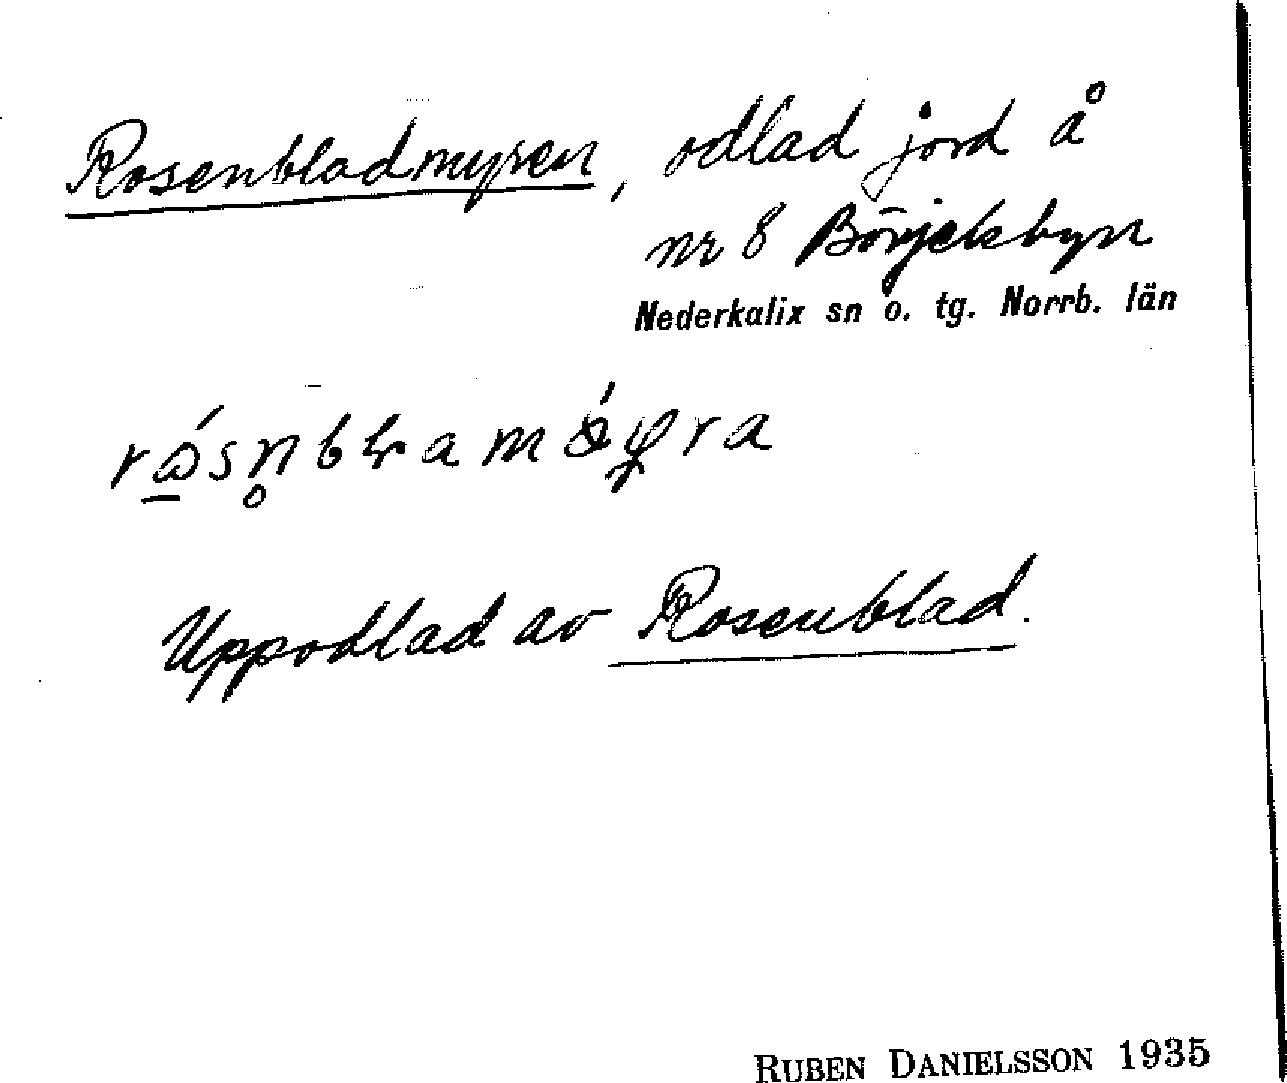 Rosenbladmyren, odlad jord å
nr 8 Börjelsbyn
Nederkalix sn o. tg. Norrb. län
Uppodlad av Rosenblad.
RUBEN DANIELSSON 1935